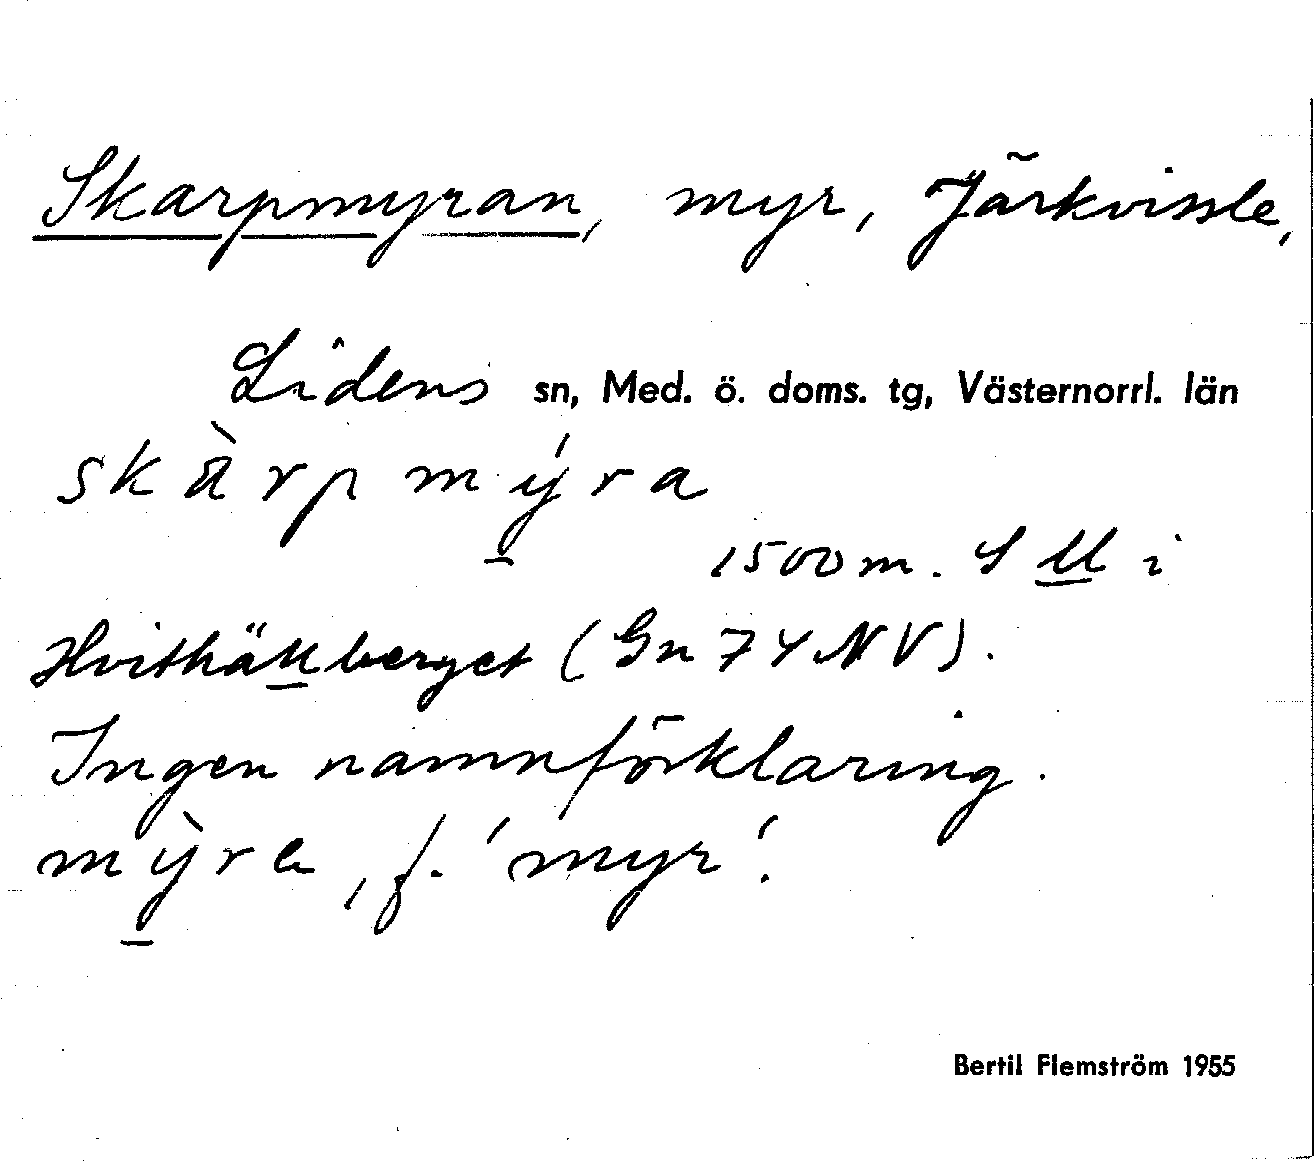 Skarpmyran, myr, Järkvissle,
Lidens sn, Med. ö. doms. tg, Västernorrl. län
skàrpmýra
1500 m. S ll i
Hvithällberget (Gn 74 NV).
Ingen namnförklaring.
mỳra, f. 'myr'.
Bertil Flemström 1955